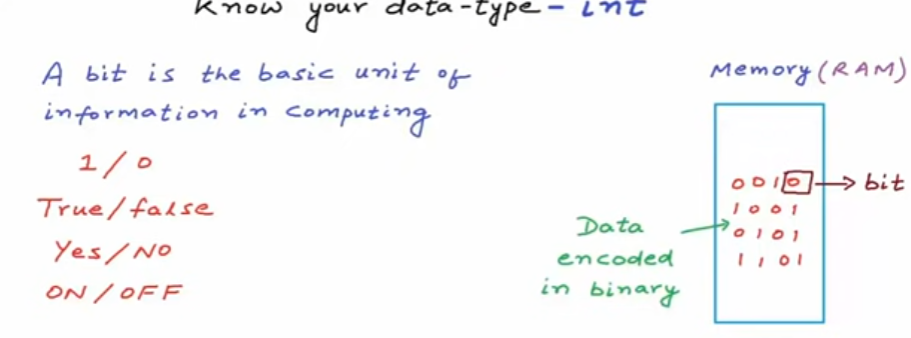 Know your data-type - int
A bit is the basic unit of
information in computing
1/0
True/false
Yes/No
ON/OFF
Memory (RAM)
0010 → bit
1001
0101
1101
Data
encoded
in binary